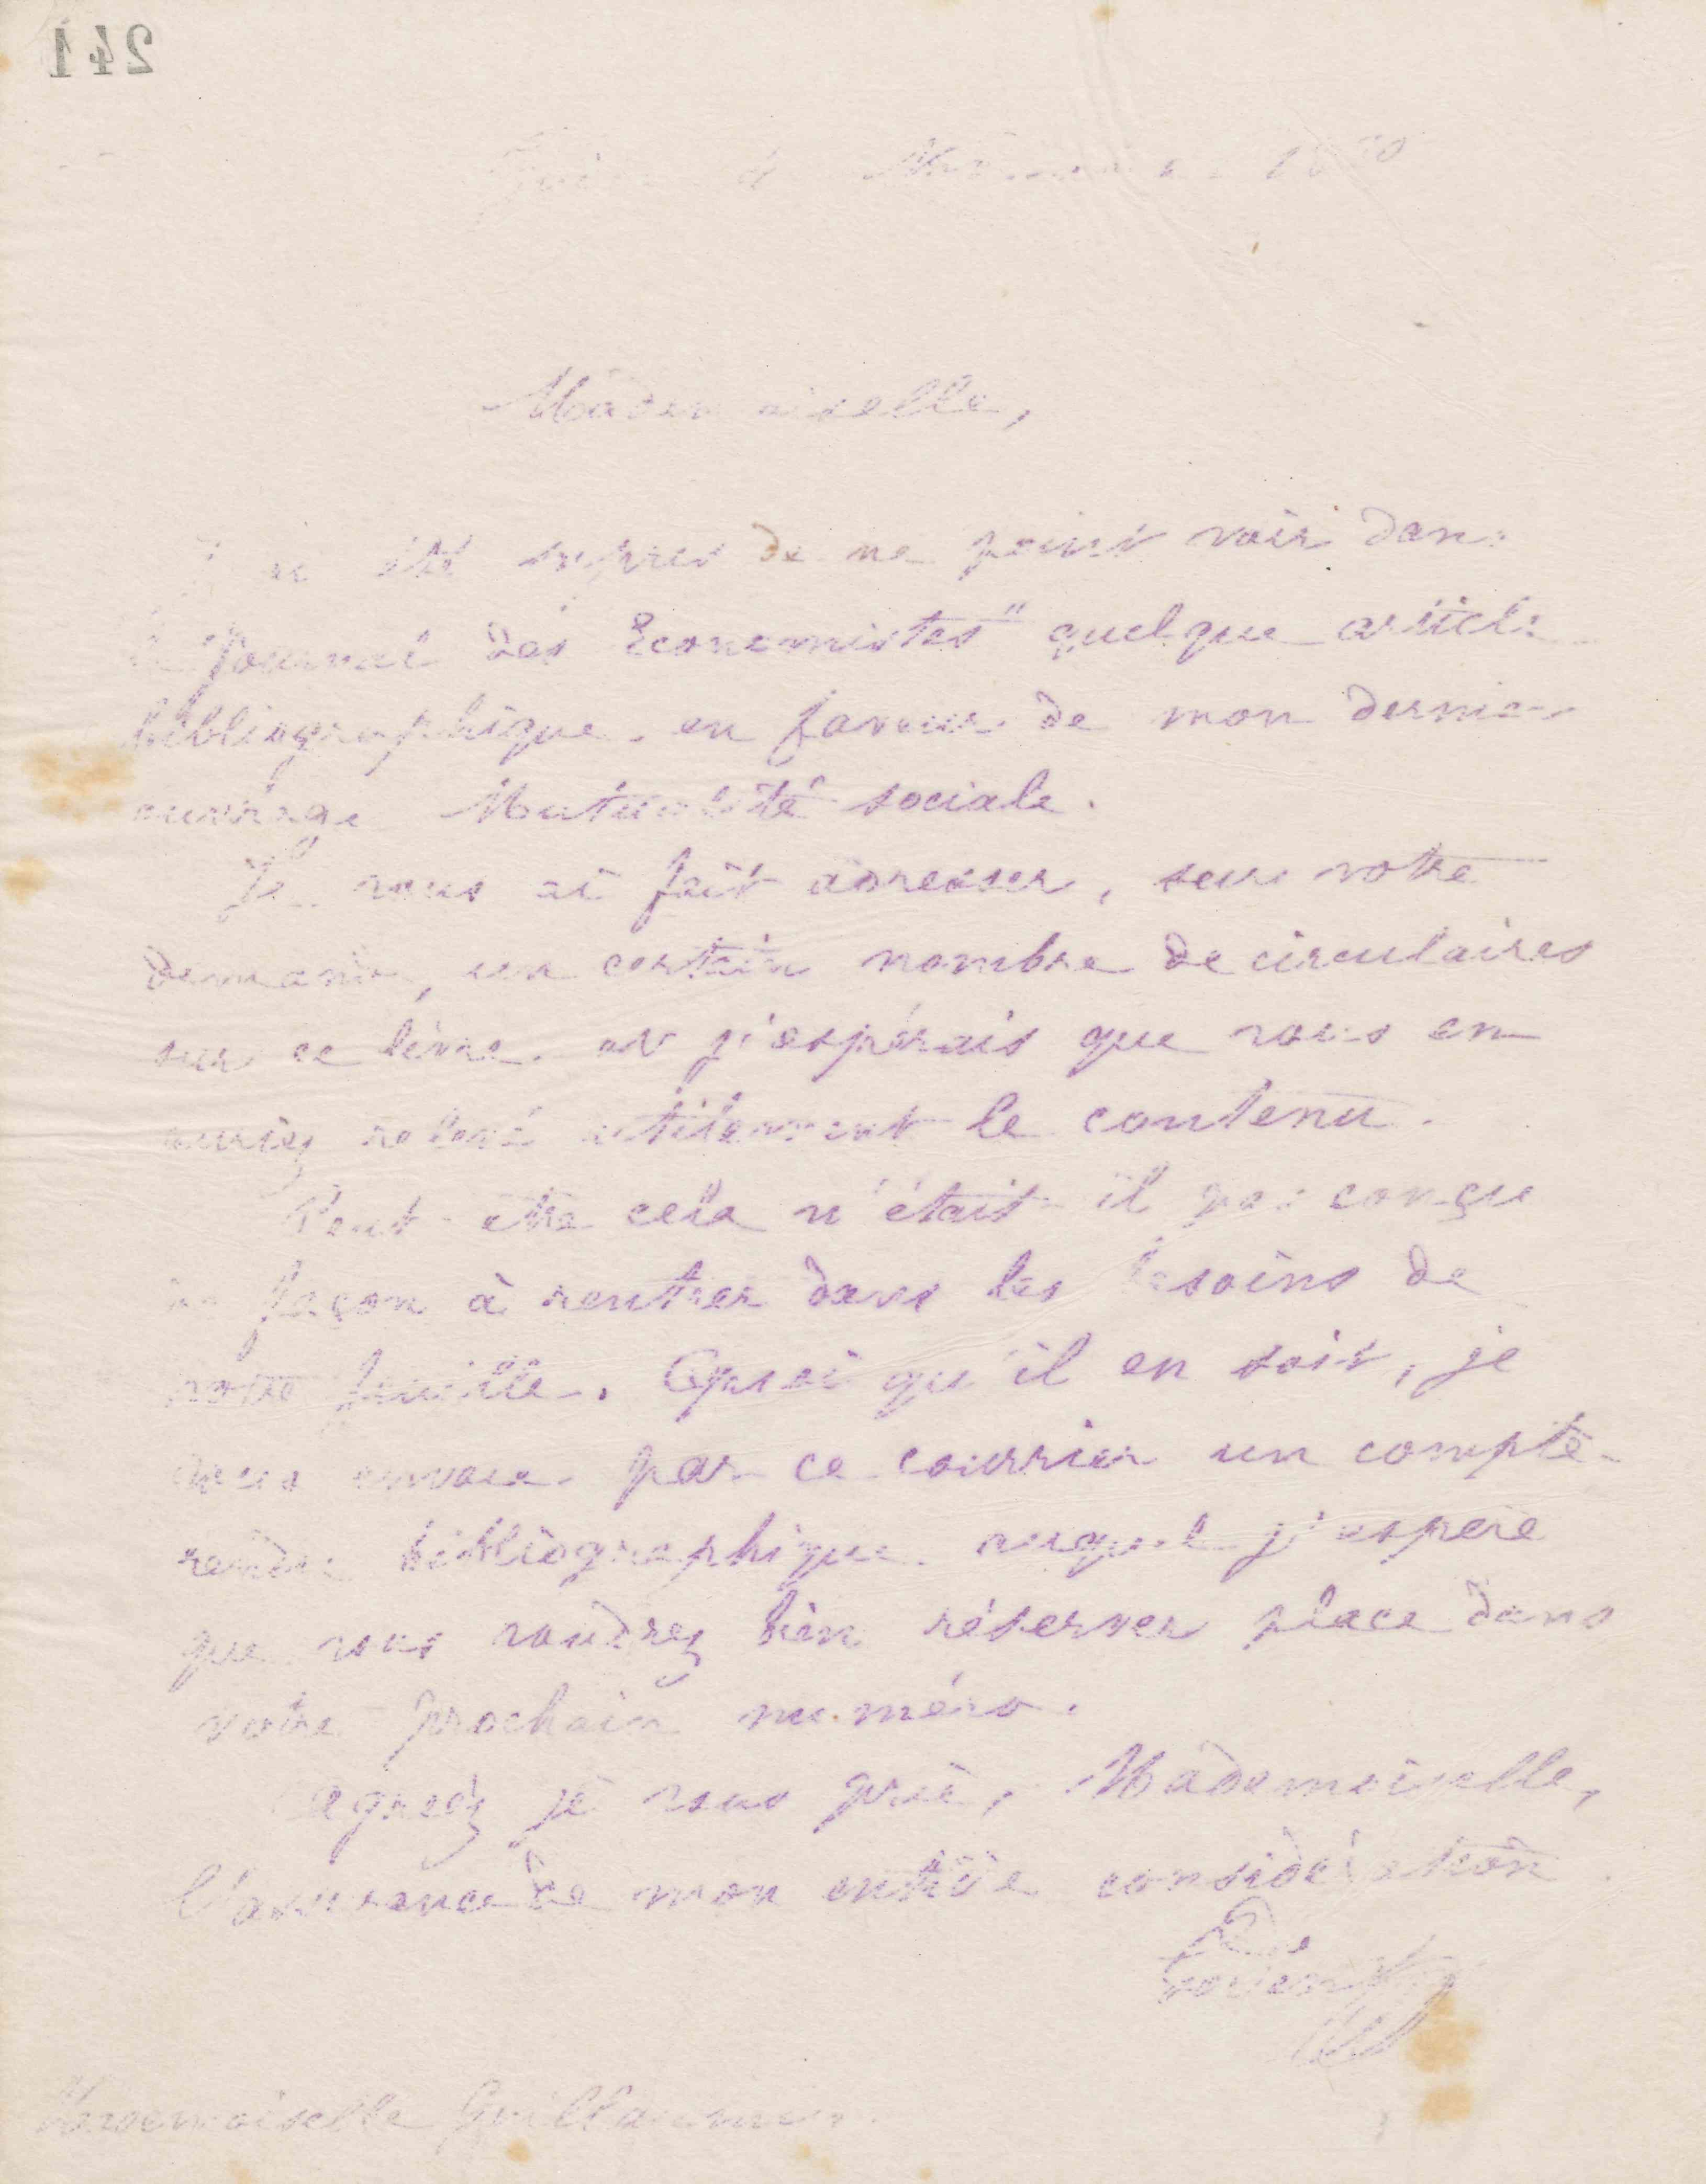 241
Guise 4 1880
Mademoiselle,
J'ai été surpris de ne point voir dans
le "Journal des Economistes" quelque article
bibliographique en faveur de mon dernier
ouvrage Mutualité sociale.
Je vous ai fait adresser, sur votre
demande, un certain nombre de circulaires
sur ce livre et j'espérais que vous en
auriez relevé utilement le contenu.
Peut-être cela n'était-il pas conçu
de façon à rentrer dans les besoins de
votre feuille. Quoi qu'il en soit, je
vous envoie par ce courrier un compte-
rendu bibliographique auquel j'espère
que vous voudrez bien réserver place dans
votre prochain numéro.
agréez je vous prie, Mademoiselle,
l'assurance de mon entière considération
Godin
Mademoiselle Guillaumin.